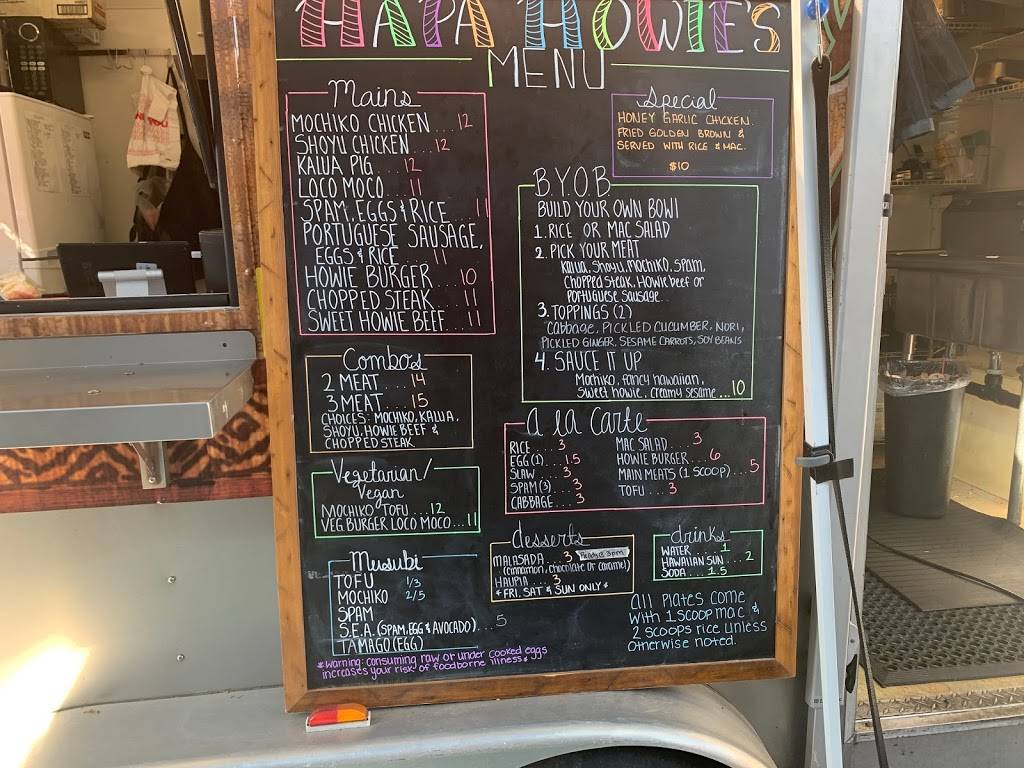 HAPA HOWIE'S
MENU
Mains
MOCHIKO CHICKEN... 12
SHOYU CHICKEN... 12
KALUA PIG... 12
LOCO MOCO... 11
SPAM, EGGS & RICE... 11
PORTUGUESE SAUSAGE,
EGGS & RICE... 11
HOWIE BURGER... 10
CHOPPED STEAK... 11
SWEET HOWIE BEEF... 11
Combo's
2 MEAT... 14
3 MEAT... 15
CHOICES: MOCHIKO, KALUA,
SHOYU, HOWIE BEEF &
CHOPPED STEAK
Vegetarian/
Vegan
MOCHIKO TOFU... 12
VEG BURGER LOCO MOCO... 11
Musubi
TOFU 1/3
MOCHIKO 2/5
SPAM
S.E.A. (SPAM, EGG & AVOCADO)... 5
TAMAGO (EGG)
*Warning: consuming raw or under cooked eggs
increases your risk of foodborne illness*
Special
HONEY GARLIC CHICKEN.
FRIED GOLDEN BROWN &
SERVED WITH RICE & MAC.
$10
B.Y.O.B
BUILD YOUR OWN BOWL
1. RICE OR MAC SALAD
2. PICK YOUR MEAT
Kalua, Shoyu, Mochiko, Spam,
Chopped Steak, Howie beef or
Portuguese Sausage
3. TOPPINGS (2)
Cabbage, PICKLED CUCUMBER, NORI,
PICKLED GINGER, SESAME CARROTS, SOY BEANS
4. SAUCE IT UP
Mochiko, fancy hawaiian,
Sweet howie, creamy sesame... 10
A la Carte
RICE... 3
EGG (1)... 1.5
SLAW... 3
SPAM (3)... 3
CABBAGE... 3
MAC SALAD... 3
HOWIE BURGER... 6
MAIN MEATS (1 SCOOP)... 5
TOFU... 3
desserts
MALASADA... 3 Ready @ 3pm
(cinnamon, chocolate or caramel)
HAUPIA... 3
* FRI, SAT & SUN ONLY *
drinks
WATER... 1
HAWAIIAN SUN... 2
SODA... 1.5
All plates come
with 1 scoop mac &
2 scoops rice unless
otherwise noted.